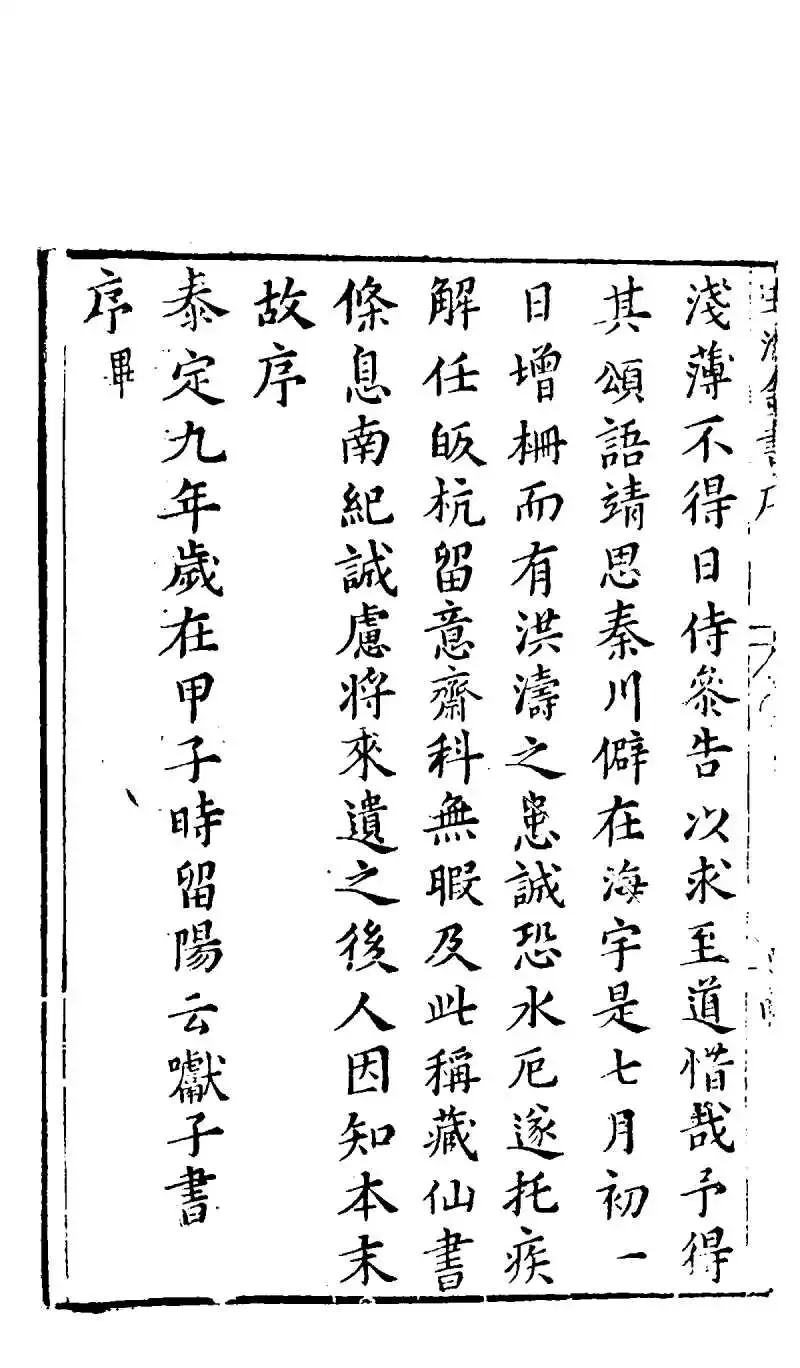 淺薄不得日侍叅告以求至道惜哉予得
其頌語靖思秦川僻在海宇是七月初一
日增栅而有洪濤之患誠恐水厄遂托疾
解任皈杭留意齋科無暇及此稱藏仙書
條息南紀誠慮將來遺之後人因知本末
故序
泰定九年歲在甲子時留陽云巘子書
序畢